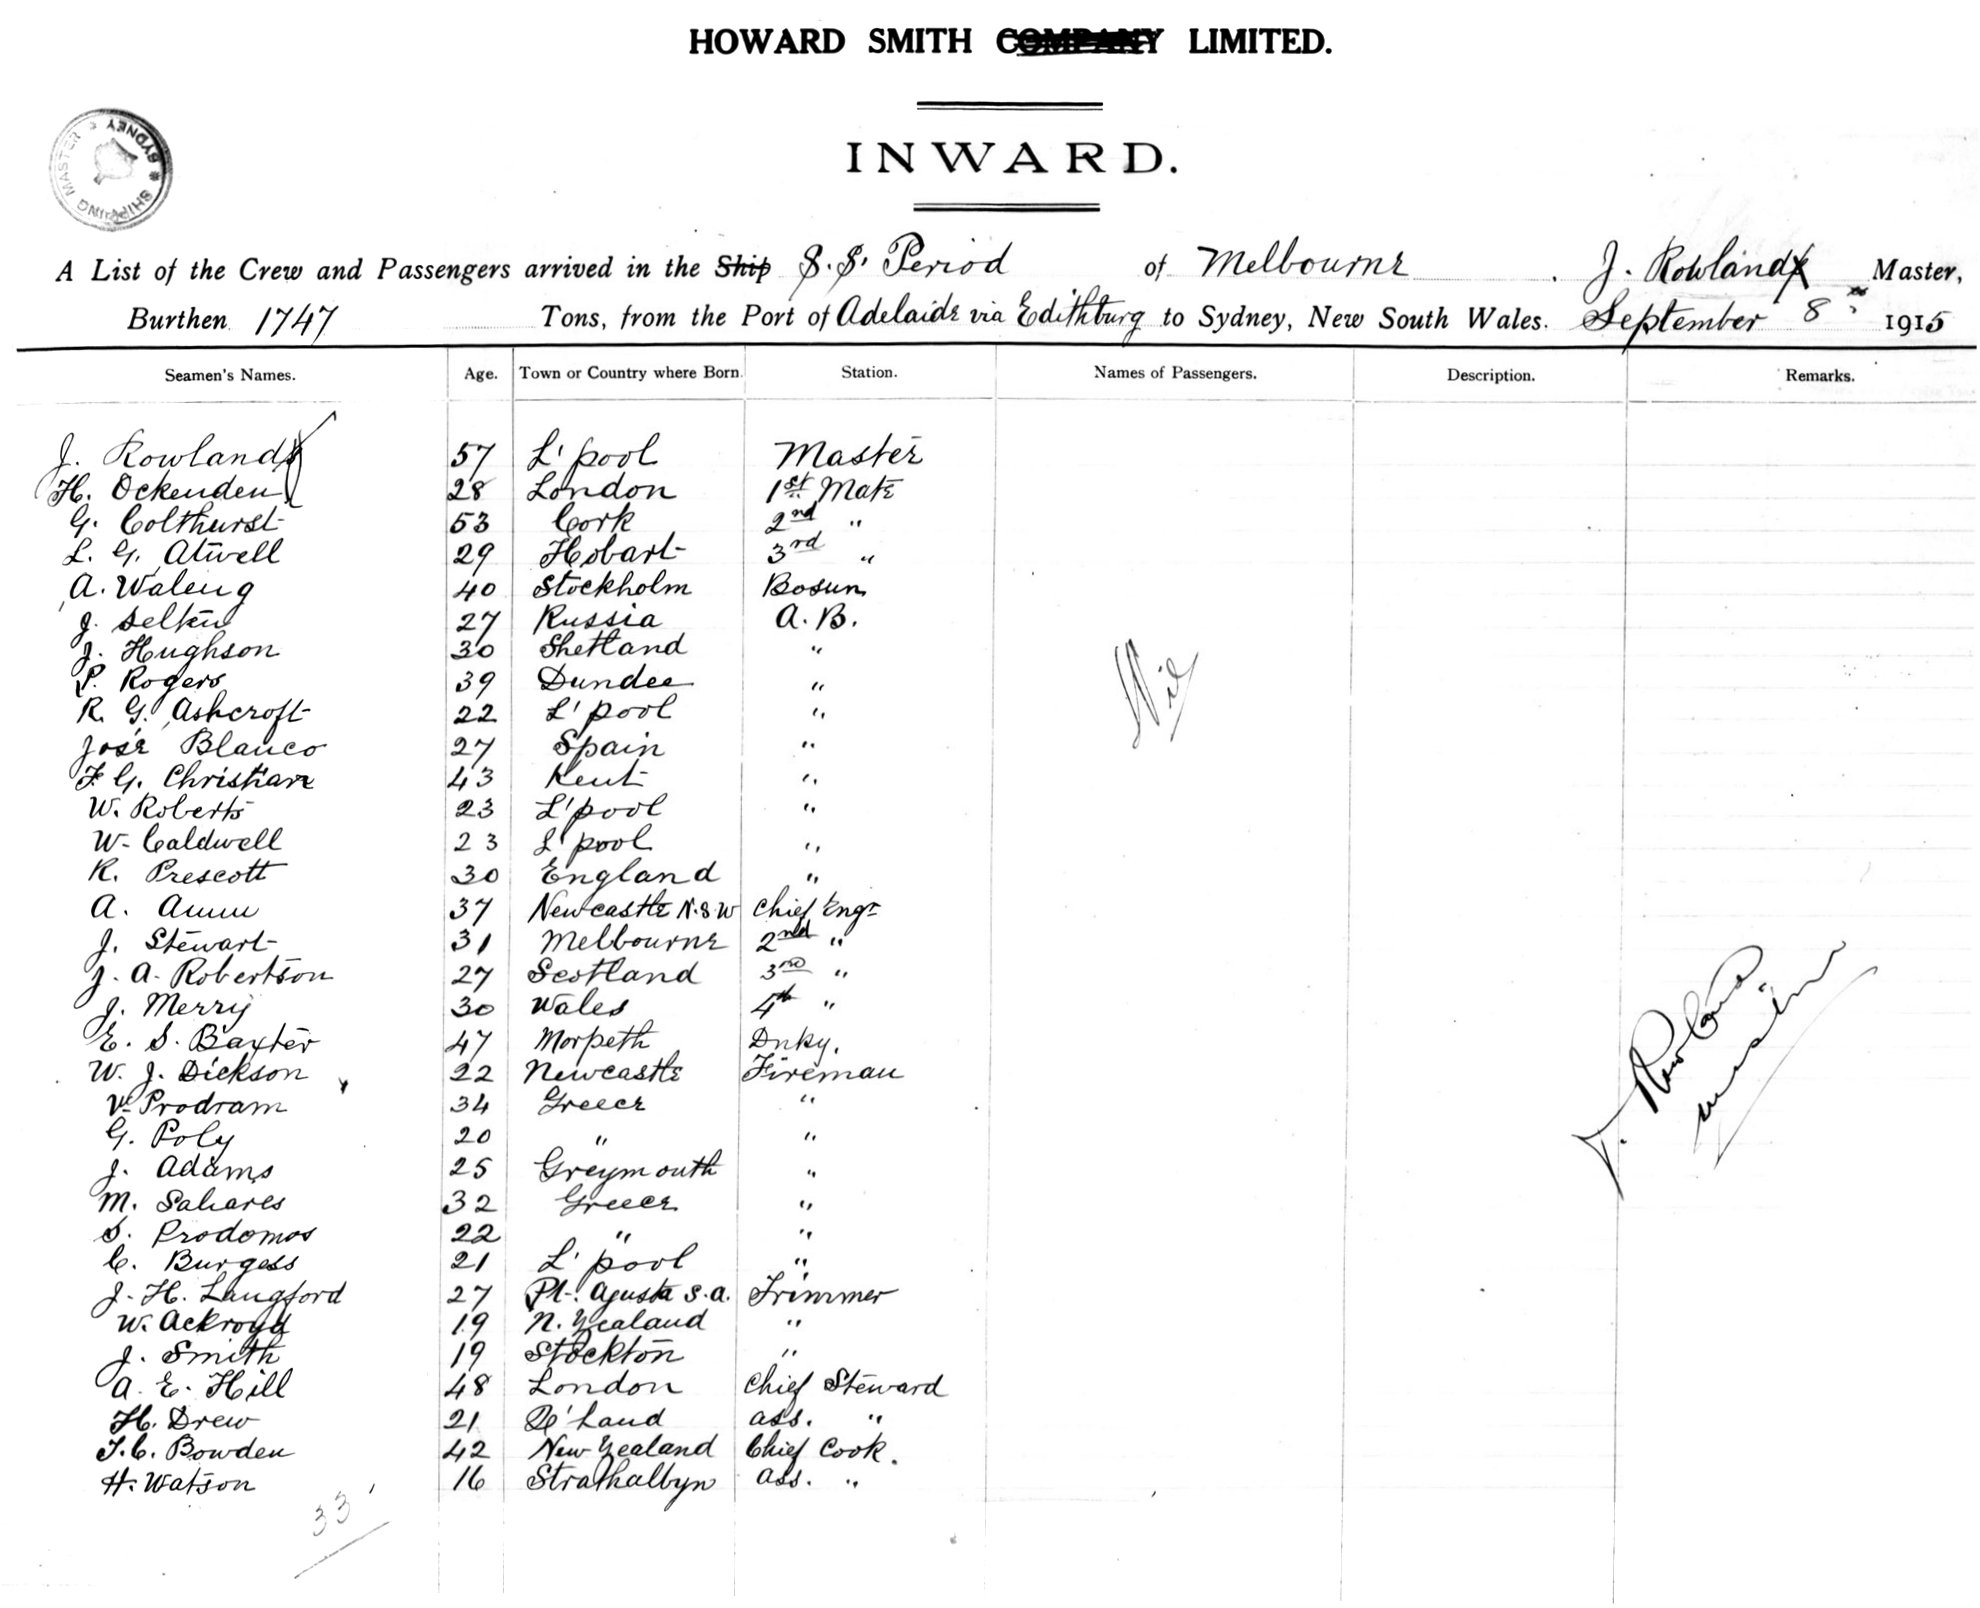 HOWARD SMITH COMPANY LIMITED.
INWARD.
SHIPPING MASTER * SYDNEY *
A List of the Crew and Passengers arrived in the Ship S.S. Period of Melbourne. J. Rowland Master,
Burthen 1747 Tons, from the Port of Adelaide via Edithburg to Sydney, New South Wales. September 8th 1915
Seamen's Names. Age. Town or Country where Born. Station. Names of Passengers. Description. Remarks.
J. Rowland 57 L'pool Master
H. Ockenden 28 London 1st Mate
G. Colthurst 53 Cork 2nd "
L. G. Atwell 29 Hobart 3rd "
A. Waleng 40 Stockholm Bosun
J. Selkin 27 Russia A.B.
J. Hughson 30 Shetland "
P. Rogers 39 Dundee "
R. G. Ashcroft 22 L'pool "
José Blanco 27 Spain "
F G. Christian 43 Kent "
W. Roberts 23 L'pool "
W. Caldwell 23 L'pool "
R. Prescott 30 England "
A. 37 Newcastle N.S.W Chief Engr
J. Stewart 31 Melbourne 2nd "
J. A. Robertson 27 Scotland 3rd "
J. Merry 30 Wales 4th "
E. S. Baxter 47 Morpeth Dnky.
W. J. Dickson 22 Newcastle Fireman
V. Prodram 34 Greece "
G. Poly 20 " "
J. Adams 25 Greymouth "
M. Saliares 32 Greece "
S. Prodomos 22 " "
C. Burgess 21 L'pool "
J. H. Langford 27 Pt. Agusta S.A. Trimmer
W. Ackroyd 19 N. Zealand "
J. Smith 19 Stockton "
A. E. Hill 48 London Chief Steward
H. Drew 21 Q'land ass. "
T. C. Bowden 42 New Zealand Chief Cook.
H. Watson 16 Strathalbyn ass. "
Nil
J. Rowland
master
33